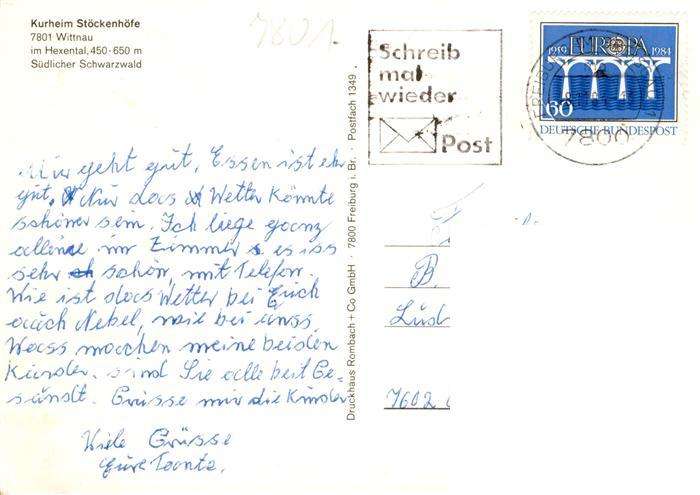 Kurheim Stöckenhöfe
7801 Wittnau
im Hexental, 450-650 m
Südlicher Schwarzwald
7801.
Mir geht gut, Essen ist ehr
gut, Nur das Wetter könnte
schöner sein. Ich liege ganz
alleine im Zimmer es iss
sehr schön, mit Telefon.
Wie ist das Wetter bei Euch
auch Nebel, wie bei unss.
Wass machen meine beiden
Kinder. sind Sie alle beit Ge-
sundt. Grüsse mir die Kinder
Viele Grüsse
Eure Toonta.
Druckhaus Rombach + Co GmbH · 7800 Freiburg i. Br. · Postfach 1349
Schreib
mal
wieder
Post
1959 EUROPA 1984
60
DEUTSCHE BUNDESPOST
7800
B.
Lüd
7602